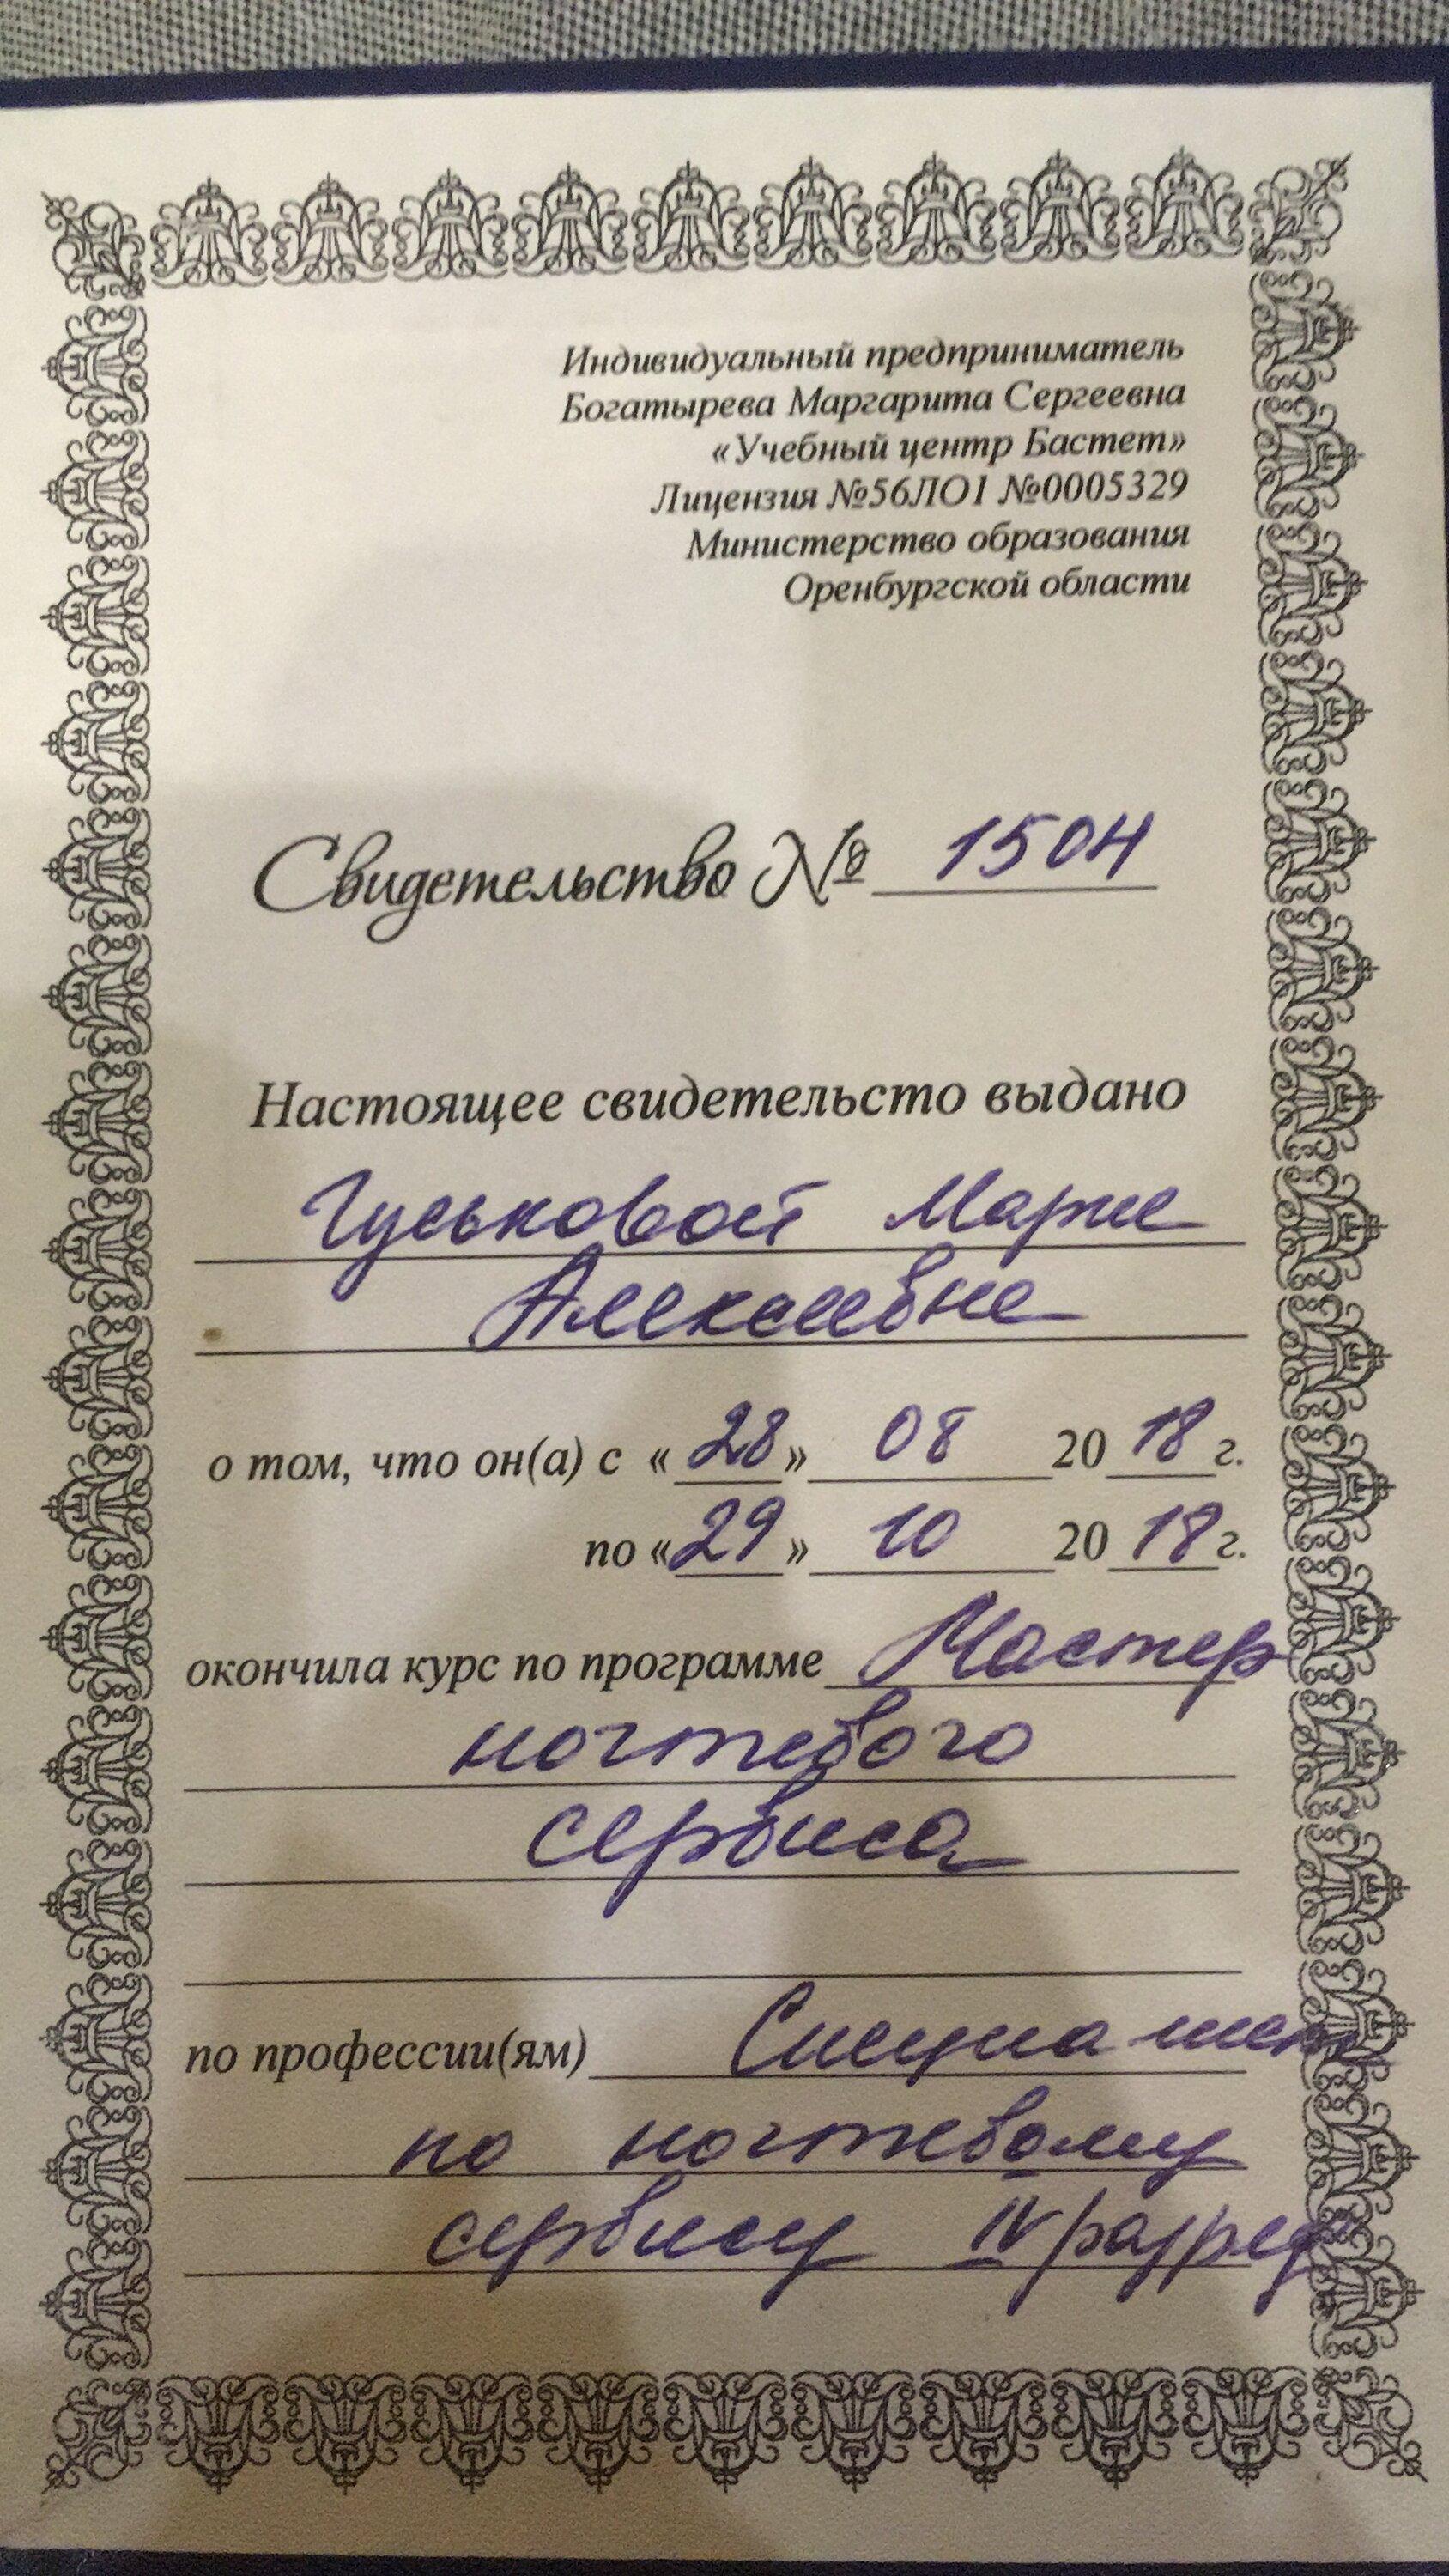 Индивидуальный предприниматель
Богатырева Маргарита Сергеевна
«Учебный центр Бастет»
Лицензия №56ЛО1 №0005329
Министерство образования
Оренбургской области
Свидетельство № 1504
Настоящее свидетельсто выдано
Гуськовой Марие
Алексеевне
о том, что он(а) с «28» 08 2018 г.
по «29» 10 2018 г.
окончила курс по программе Мастер
ногтевого
сервиса
по профессии(ям) Специалист
по ногтевому
сервису IV разряд